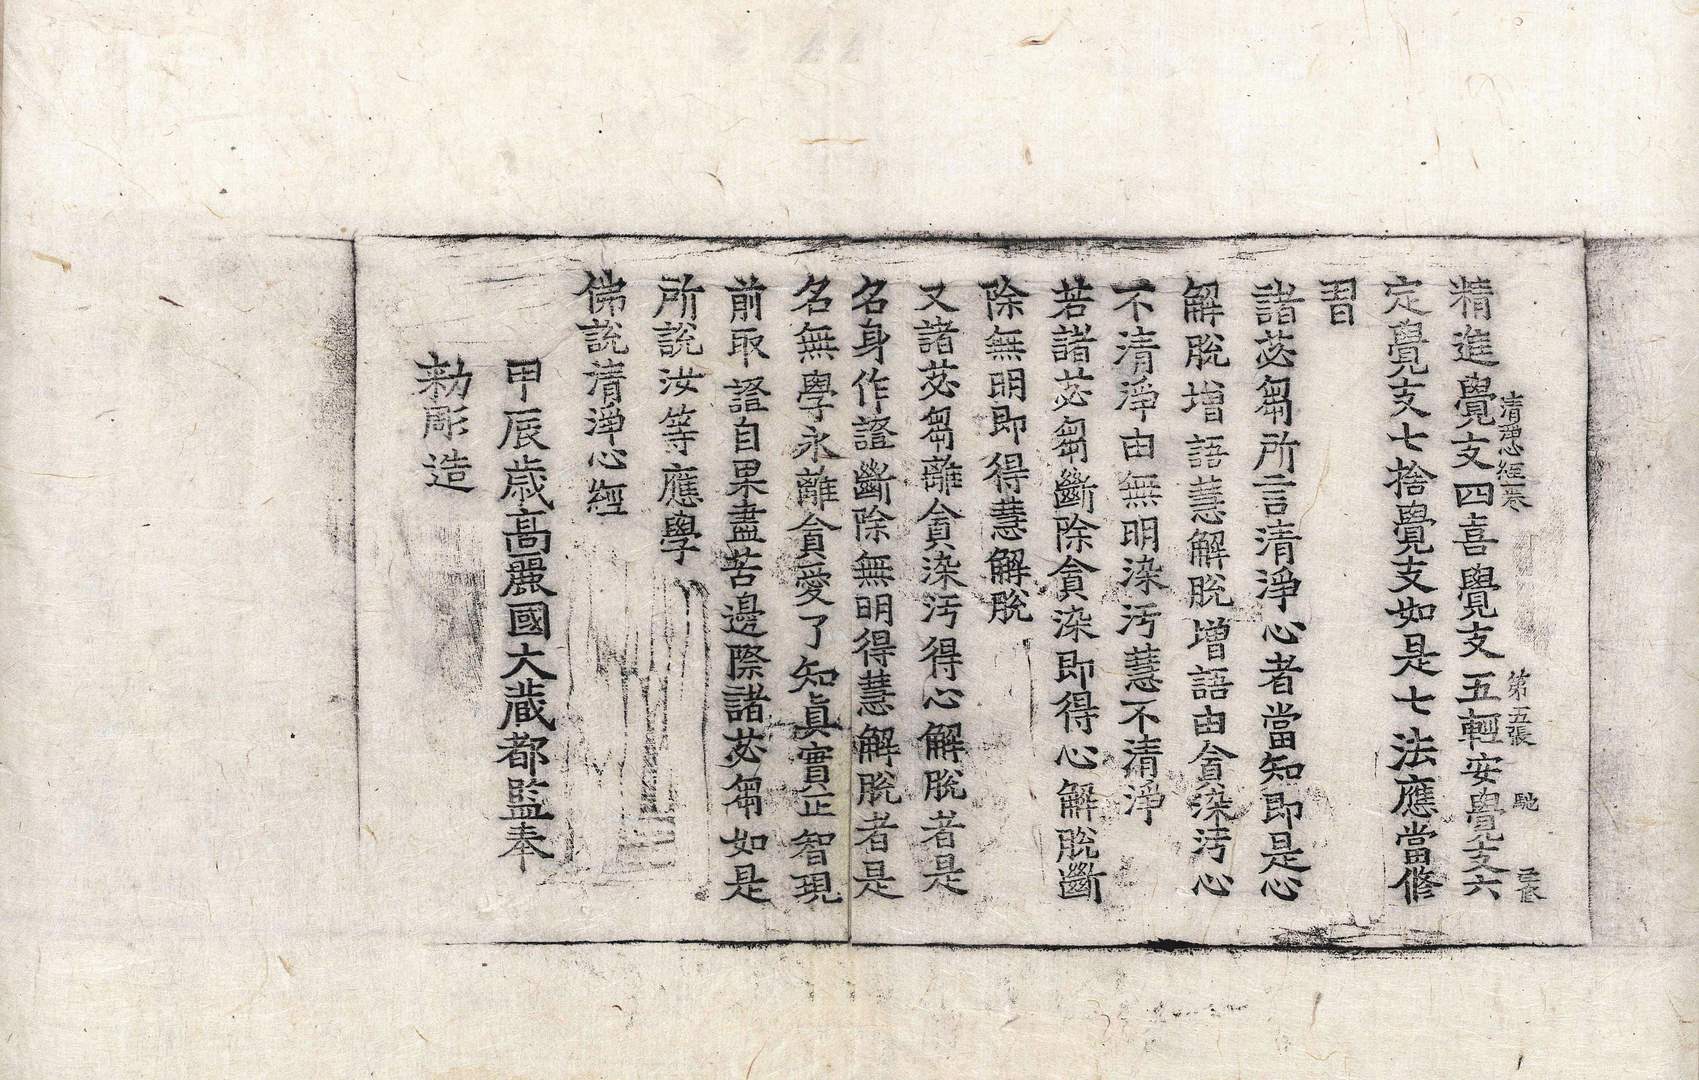 精進覺支四喜覺支五輕安覺支六
清淨心經一卷 第五張 馳
定覺支七捨覺支如是七法應當修
習
諸苾芻所言清淨心者當知即是心
解脫增語慧解脫增語由貪染汚心
不清淨由無明染汚慧不清淨
若諸苾芻斷除貪染即得心解脫斷
除無明即得慧解脫
又諸苾芻離貪染汚得心解脫者是
名身作證斷除無明得慧解脫者是
名無學永離貪愛了知眞實正智現
前取證自果盡苦邊際諸苾芻如是
所說汝等應學
佛說清淨心經
甲辰歲高麗國大藏都監奉
勑彫造